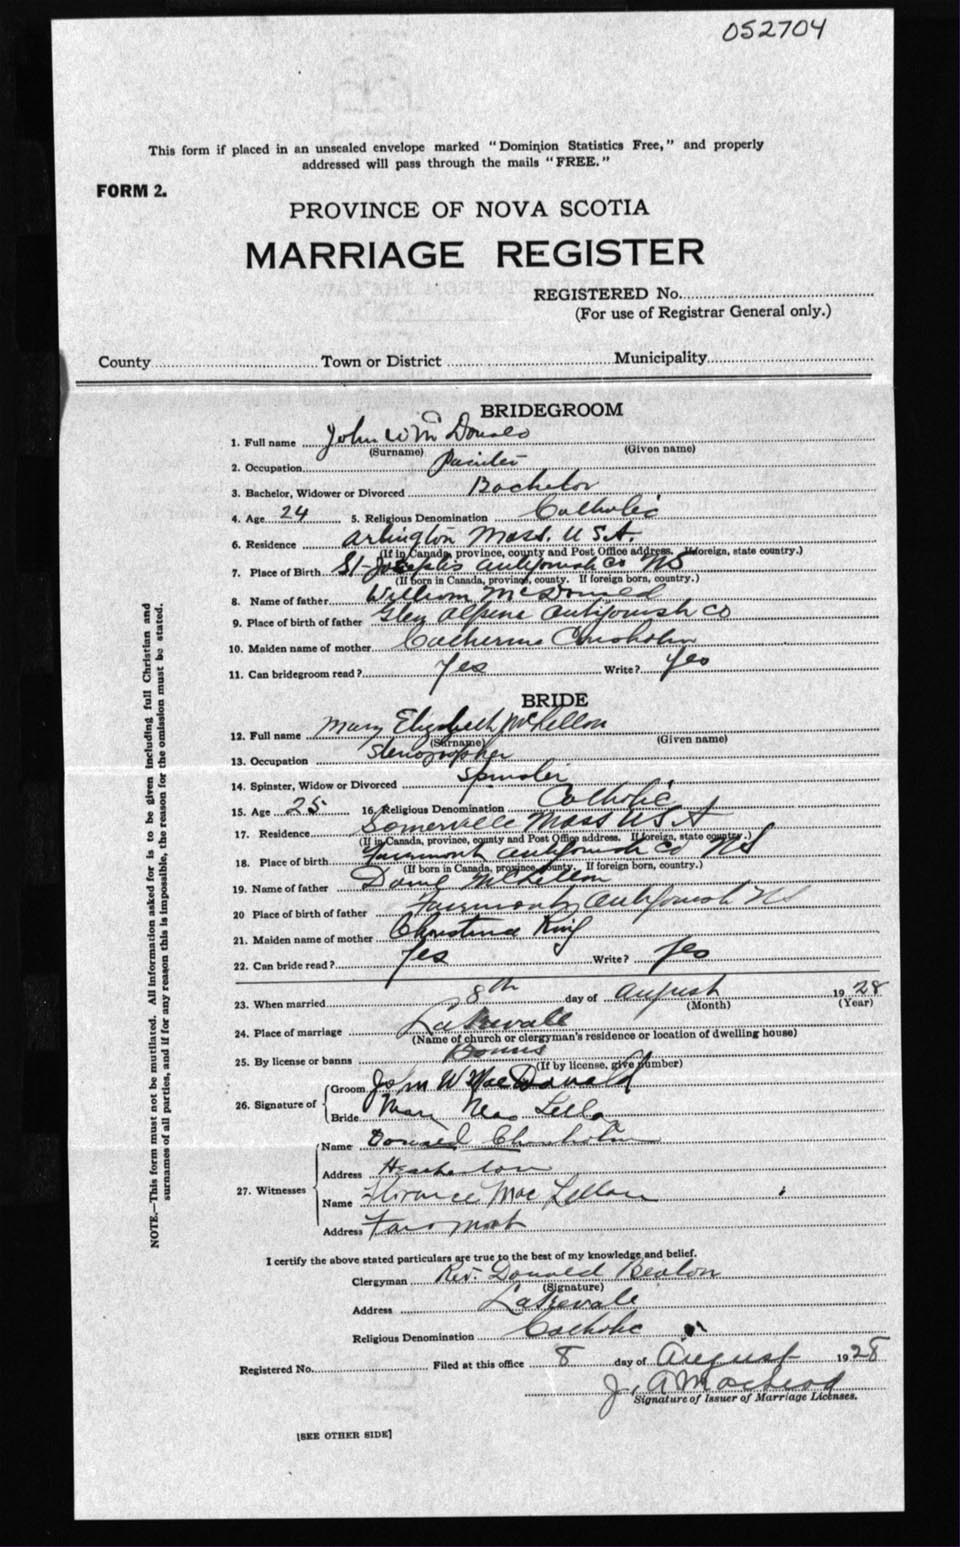 052704
This form if placed in an unsealed envelope marked "Dominion Statistics Free," and properly
addressed will pass through the mails "FREE."
FORM 2.
PROVINCE OF NOVA SCOTIA
MARRIAGE REGISTER
REGISTERED No.
(For use of Registrar General only.)
County Town or District Municipality
BRIDEGROOM
1. Full name John W McDonald
(Surname) (Given name)
2. Occupation Painter
3. Bachelor, Widower or Divorced Bachelor
4. Age 24 5. Religious Denomination Catholic
6. Residence Arlington Mass. U.S.A.
(If in Canada, province, county and Post Office address. If foreign, state country.)
7. Place of Birth St Josephs Antigonish Co NS
(If born in Canada, province, county. If foreign born, country.)
8. Name of father William McDonald
9. Place of birth of father Glen Alpine Antigonish Co
10. Maiden name of mother Catherine Chisholm
11. Can bridegroom read? Yes Write? Yes
BRIDE
12. Full name Mary Elizabeth McLellan
(Surname) (Given name)
13. Occupation Stenographer
14. Spinster, Widow or Divorced Spinster
15. Age 25 16. Religious Denomination Catholic
17. Residence Somerville Mass USA
(If in Canada, province, county and Post Office address. If foreign, state country.)
18. Place of birth Fairmont Antigonish Co NS
(If born in Canada, province, county. If foreign born, country.)
19. Name of father McLellan
20 Place of birth of father Fairmont Antigonish NS
21. Maiden name of mother Christina King
22. Can bride read? Yes Write? Yes
23. When married 8th day of August 1928
(Month) (Year)
24. Place of marriage Lakevale
(Name of church or clergyman's residence or location of dwelling house)
25. By license or banns Banns
(If by license, give number)
26. Signature of Groom John W MacDonald
Bride Mary MacLellan
27. Witnesses Name Donald Chisholm
Address Heatherton
Name Florence MacLellan
Address Fairmont
I certify the above stated particulars are true to the best of my knowledge and belief.
Clergyman Rev. Donald Beaton
(Signature)
Address Lakevale
Religious Denomination Catholic
Registered No. Filed at this office 8 day of August 1928
J. A MacLeod
Signature of Issuer of Marriage Licenses.
[SEE OTHER SIDE]
NOTE.—This form must not be mutilated. All information asked for is to be given including full Christian and
surnames of all parties, and if for any reason this is impossible, the reason for the omission must be stated.